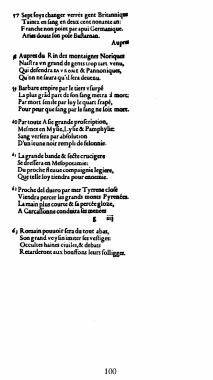 57 Sept foys changer verrés gent Britannique
Taintz en sang en deux cent nonante an:
Franche non point par apui Germanique.
Aries doute son pole Bastarnan.
Aupres
58 Aupres du Rin des montaignes Noriques
Naistra vn grand de gents trop tart venu,
Qui defendra SAVROME & Pannoniques,
Qu'on ne saura qu'il sera deuenu.
59 Barbare empire par le tiers vsurpé
La plus grãd part de son sang metra à mort:
Par mort senile par luy le quart frapé,
Pour peur que sang par le sang ne soit mort.
60 Par toute Asie grande proscription,
Mesmes en Mysie, Lysie & Pamphylie:
Sang versera par absolution
D'un ieune noir rempli de felonnie.
61 La grande bande & secte crucigere
Se dressera en Mesopotamie:
Du proche fleuue compaignie legiere,
Que telle loy tiendra pour ennemie.
62 Proche del duero par mer Tyrrene close
Viendra percer les grands monts Pyrenées.
La main plus courte & sa percée gloze,
A Carcassonne conduira ses menées
g iiij
63 Romain pouuoir sera du tout abas,
Son grand voysin imiter ses vestiges:
Occultes haines ciuiles, & debats
Retarderont aux bouffons leurs folliges.
100